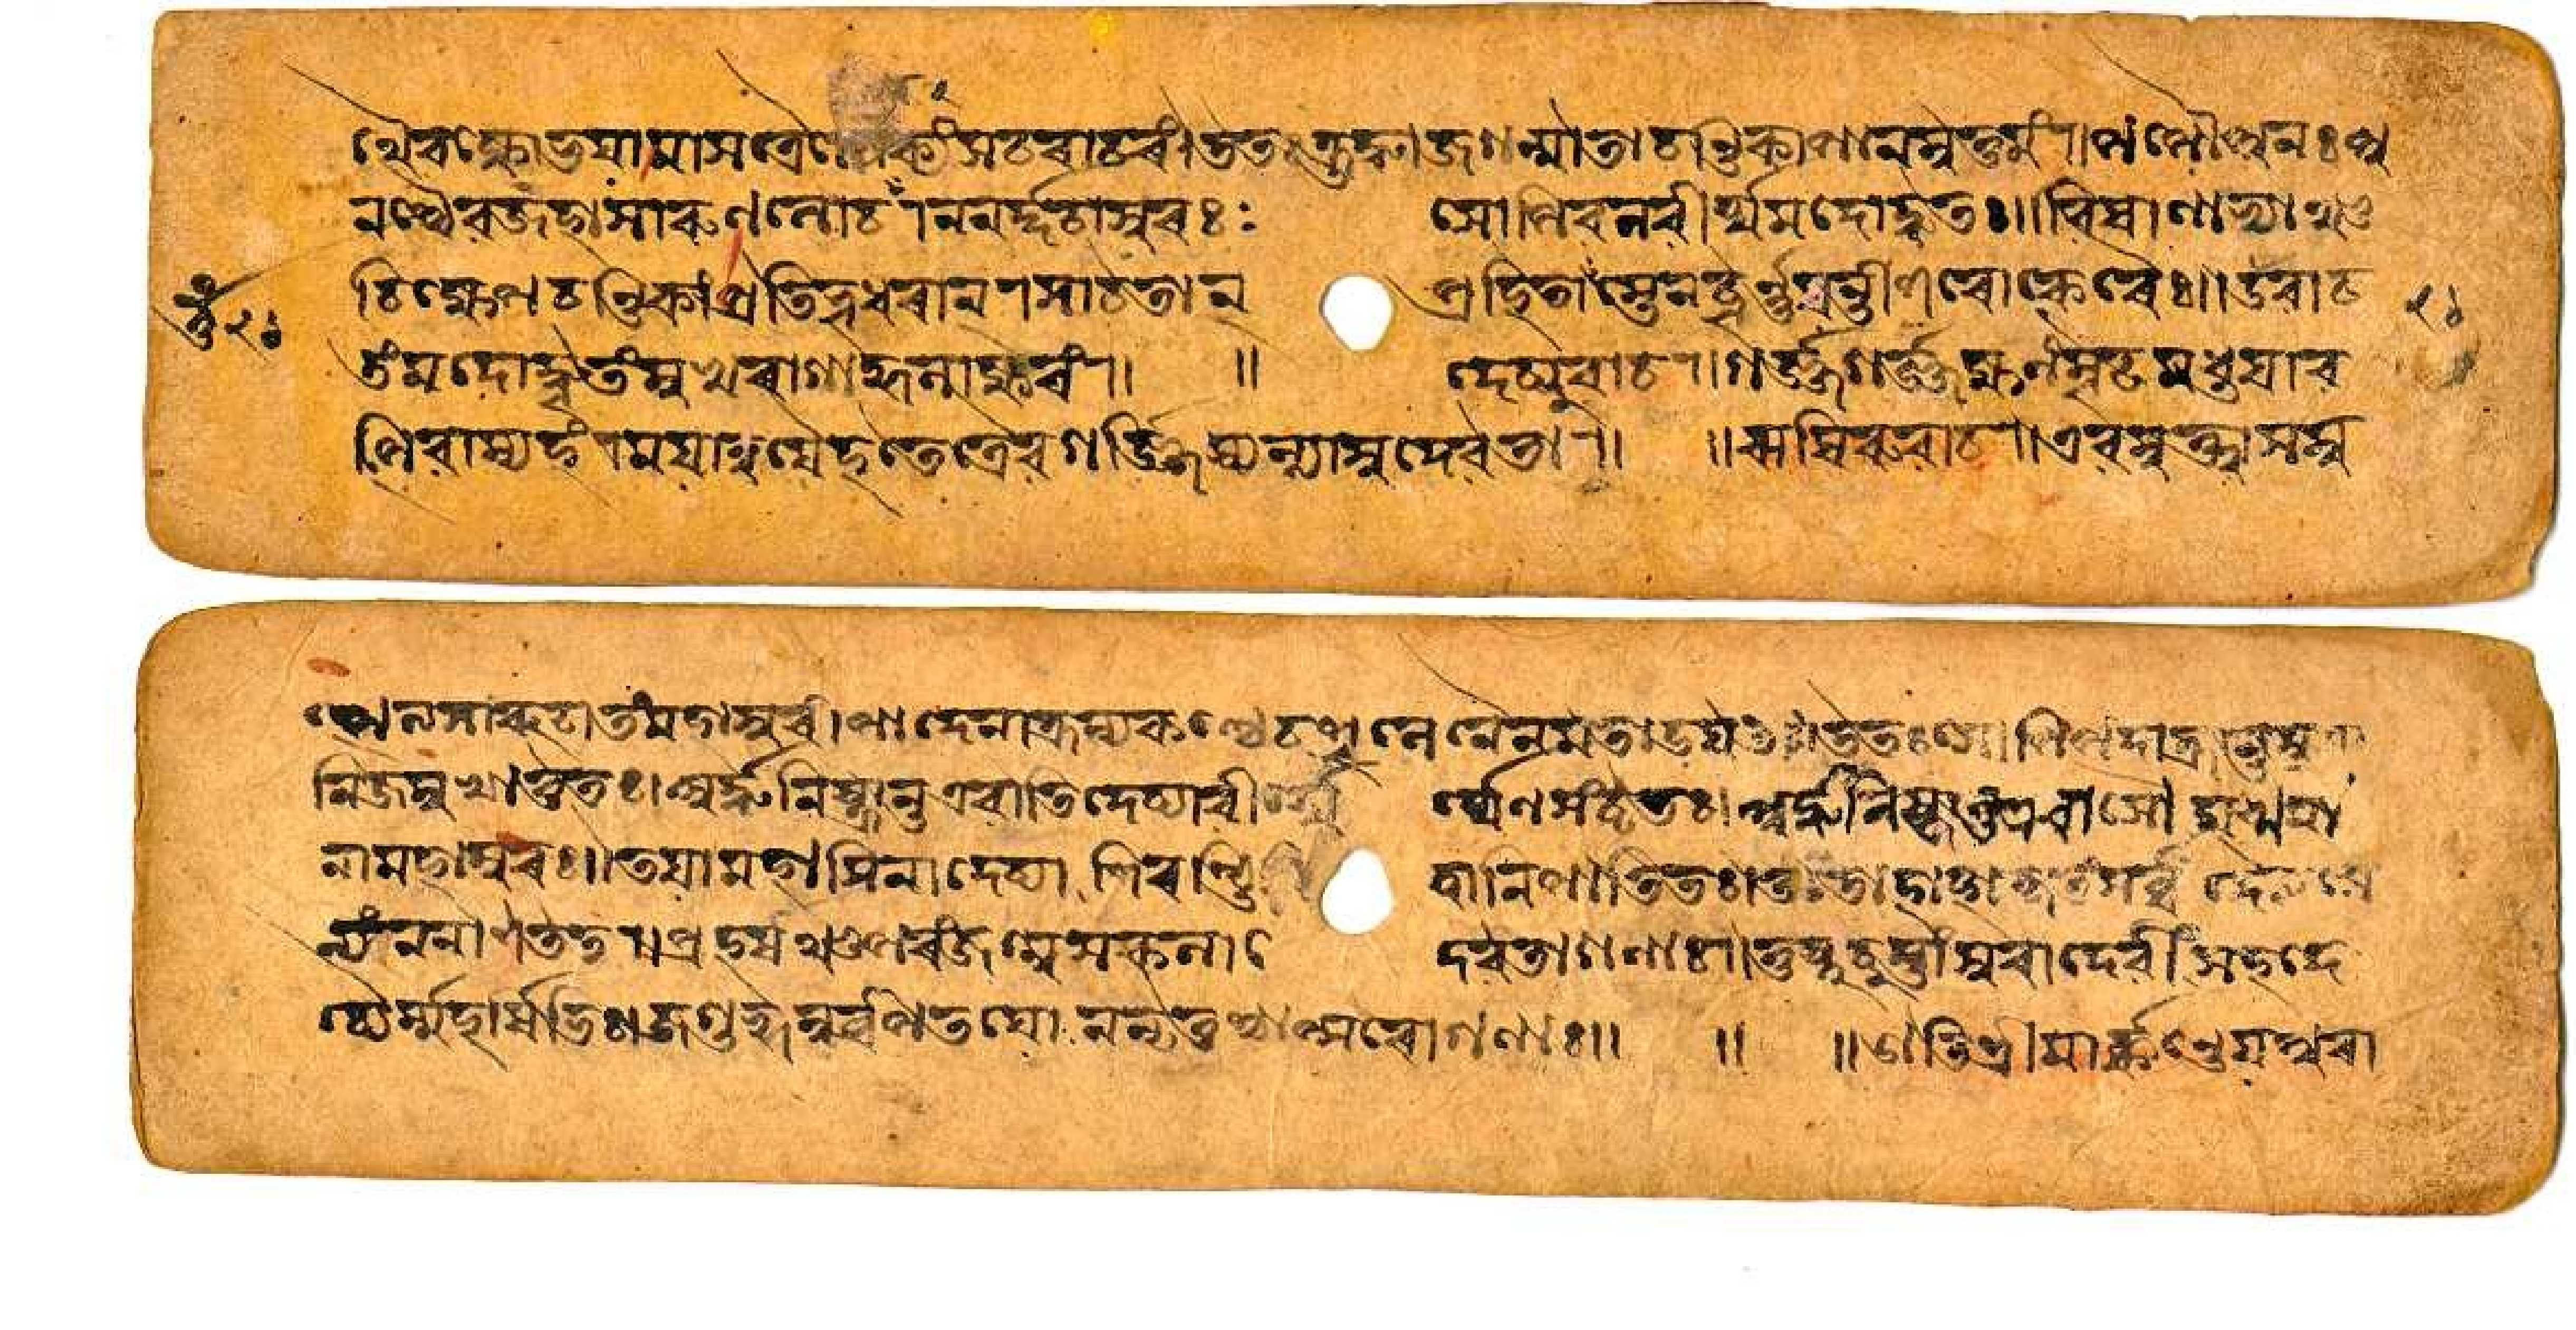 থৈব ক্ষোভয়ামাস ত্রৈলোক্যং সচরাচরং। ততঃ ক্রুদ্ধা জগন্মাতা চণ্ডিকা পানমুত্তমং। পপৌ পুনঃ পু
নশ্চৈব জহাসারুণলোচনা ননর্দ্দ চাসুরঃ সোপি বলবীর্য্যমদোদ্ধতঃ॥ বিষাণাভ্যাঞ্চ
চিক্ষেপ চণ্ডিকাং প্রতি ভূধরান্ সা চ তান্ প্রহিতাংস্তেন চূর্ণ্ণয়ন্তী শরোৎকরৈঃ॥ উবাচ
২১ ২১
তং মদোদ্ধূতং মুখরাগাকুলাক্ষরং॥ ॥ দেব্যুবাচ॥ গর্জ্জ গর্জ্জ ক্ষণং মূঢ মধু যাব
পিবাম্যহং। ময়া ত্বয়ি হতেত্রৈব গর্জ্জিষ্যন্ত্যাশু দেবতাঃ॥ ॥ ঋষিরুবাচ॥ এবমুক্ত্বা সমু
ৎপত্য সারূঢা তং মহাসুরং। পাদেনাক্রম্য কণ্ঠে চ শূলেনৈনমতাডয়ৎ॥ ততঃ সোপি পদাক্রান্তস্তয়া
নিজমুখাত্ততঃ। অর্দ্ধনিষ্ক্রান্ত এবাতি দেব্যা বীর্য্যেণ সংবৃতঃ। অর্দ্ধনিষ্ক্রান্ত এবাসৌ যুধ্যমা
নো মহাসুরঃ॥ তয়া মহাসিনা দেব্যা শিরশ্ছিত্ত্বা নিপাতিতঃ। ততো হাহাকৃতং সর্ব্বং দৈত্যসৈ
ন্যং ননাশ তৎ॥ প্রহর্ষঞ্চ পরং জগ্মুঃ সকলা দেবতাগণাঃ। তুষ্টুবুস্তাং সুরা দেবীং সহ দি
ব্যৈর্ম্মহর্ষিভিঃ। জগুর্গন্ধর্ব্বপতয়ো ননৃতুশ্চাপ্সরোগণাঃ॥ ॥ ॥ ইতি শ্রীমার্ক্কণ্ডেয়পুরা